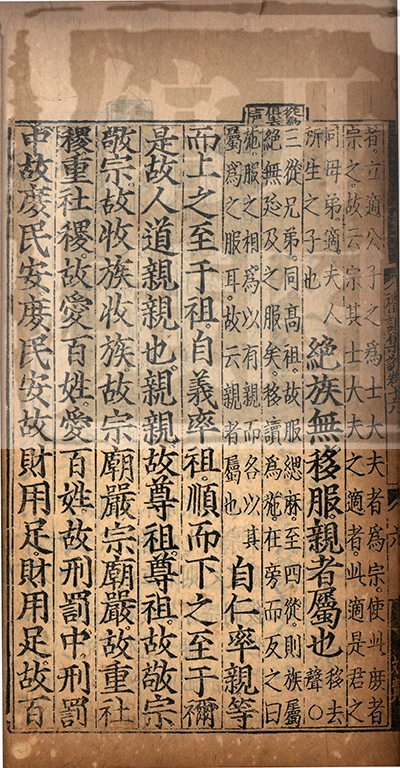 者立適公子之爲士大夫者爲宗使此庶者
宗之故云宗其士大夫之適者此適是君之
同母弟適夫人
所生之子也
絕族無移服親者屬也
移去
聲○
三從兄弟。同高祖。故服緦麻。至四從。則族屬
絕無㤙及之服矣。移讀爲施。在旁而及之曰
施。服之相爲。以有親而各以其
屬爲之服耳。故云親者屬也
自仁率親等
而上之至于祖。自義率祖。順而下之至于禰
是故人道親親也。親親故尊祖。尊祖。故敬宗
敬宗。故收族。收族。故宗廟嚴。宗廟嚴。故重社
稷。重社稷。故愛百姓。愛百姓。故刑罰中。刑罰
中。故庶民安。庶民安。故財用足。財用足。故百